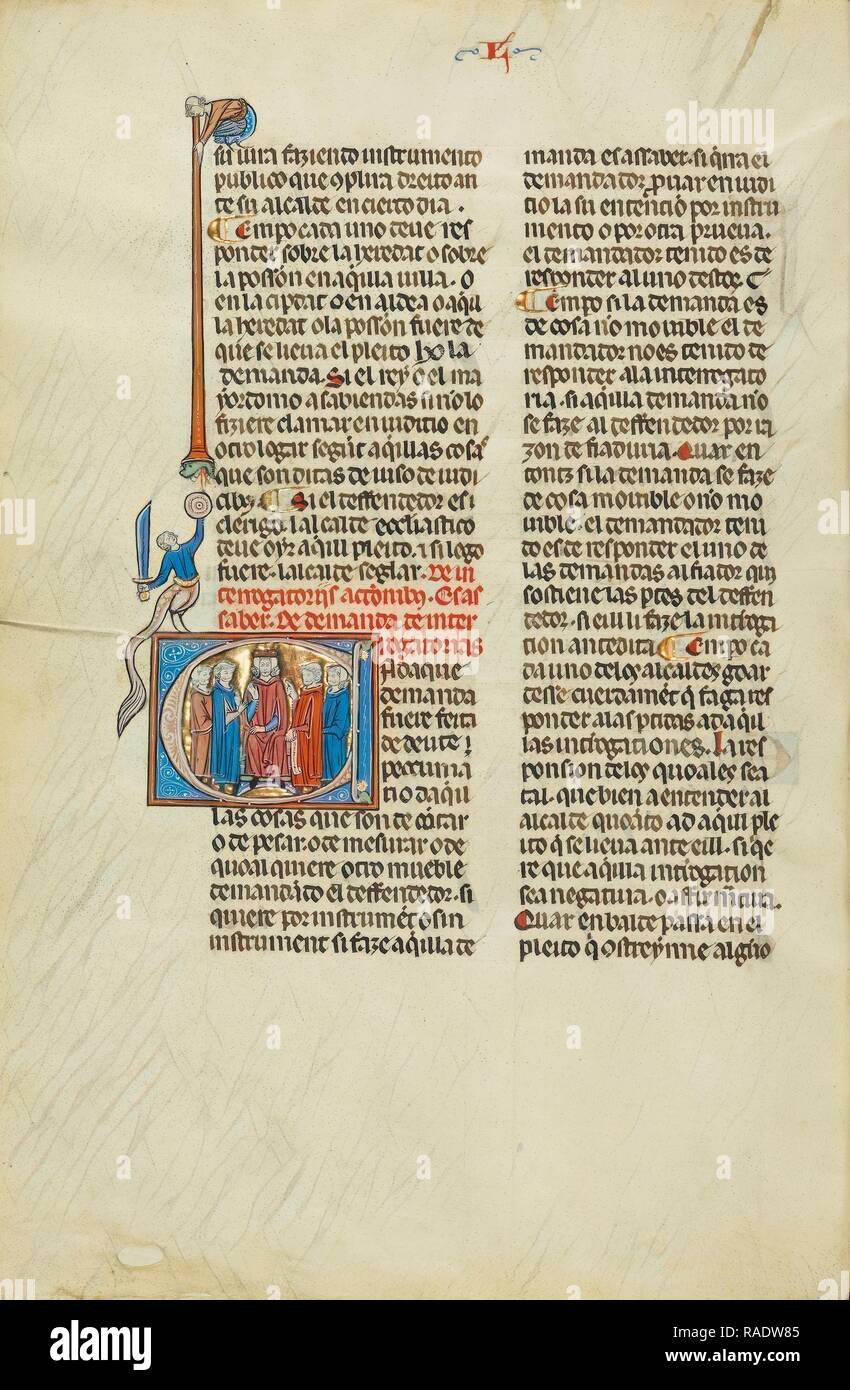 L
su uira faziendo instrumento
publico que cōplira dreito an
te su alcalde en cierto dia.
Empo cada uno deue res
ponder sobre la heredat o sobre
la possōn en aq̄lla uilla. O
en la ciptat o en aldea o aqui
la heredat o la possōn fuere de
que se lieua el pleito
demanda. Si el rey o el ma
yordomo a sabiendas si nolo
fiziere clamar en iudicio en
otro logar segūt aquillas cosas
que son ditas de uiso de iudi
cibꝫ. Si el deffendedor es
clerigo. lalcalde eccliastico
deue oyr aq̄ll pleito. ⁊ si lego
fuere. lalcalde seglar. De in
terrogatorijs actōnibꝫ. Es as
saber. De demanda de inter
rogatorias
Ada que
demanda
fuere feita
de deute ⁊
peccunia
tio daq̄ll
las cosas que son de cōtar
o de pesar. o de mesurar o de
quoal quiere otro mueble
demandādo el deffendedor. si
quiere por instrumēt o sin
instrument si faze aq̄lla de
manda es assaber. si q̄rra el
demandador prouar en iudi
cio la su entenciō por instru
mento o por otra prueua.
el demandador tenido es de
responder al uno destos.
Empo si la demanda es
de cosa no mouible el de
mandador no es tenido de
responder a la interrogato
ria. si aq̄lla demanda nō
se faze al deffendedor por ra
zon de fiaduria. Quar en
tonz si la demanda se faze
de cosa mouible o nō mo
uible. el demandador teni
do es de responder el uno de
las demandas al fiador qui
sostiene las ptes del deffen
dedor. si eill li faze la intrroga
tion antedita. Empo ca
da uno delos alcaldes goar
desse cuerdamēt q̄ faga res
ponder a las ptidas ad aq̄ll
las intrrogationes. La res
ponsion delos quoales sea
tal. que bien a entender al
alcalde quoāto ad aq̄ll ple
ito q̄ se lieua ante eill. si q̄e
re que aq̄lla intrrogation
sea negatiua. o affirmatiua.
Quar en balde passa en el
pleito q̄ ostreynne algūo
alamy
Image ID: RADW85
www.alamy.com